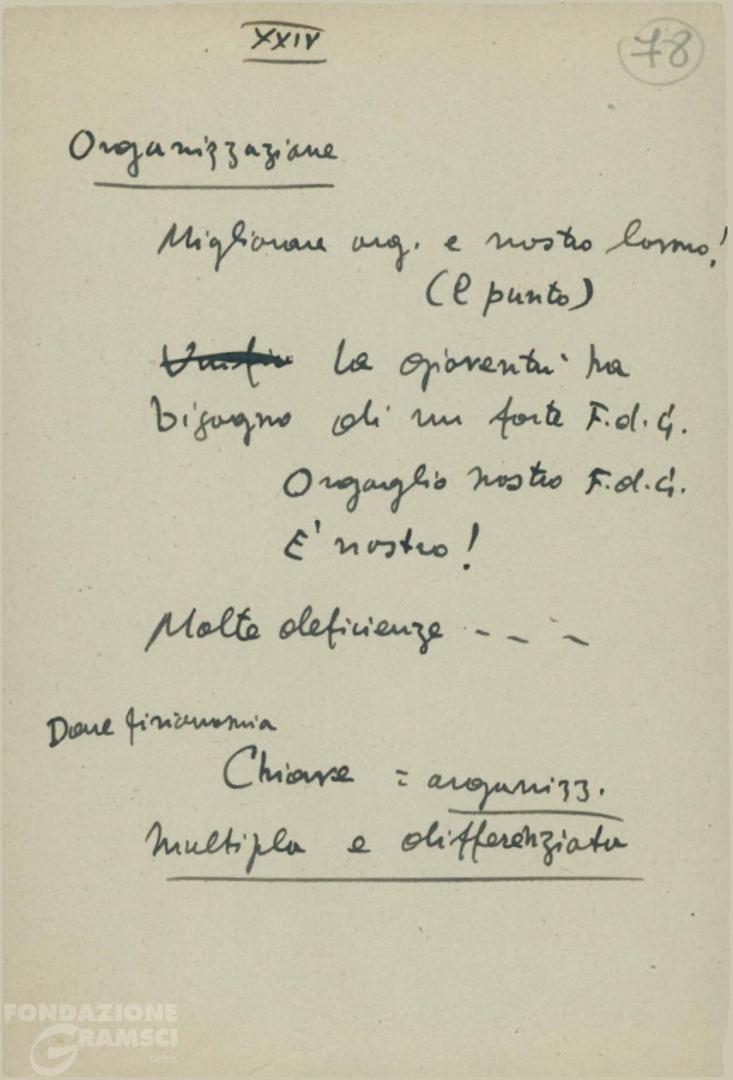 XXIV
78
Organizzazione
Migliorare org. e nostro lavoro!
(2 punto)
La gioventù ha
bisogno di un forte F.d.G.
Orgoglio nostro F.d.G.
E' nostro!
Molte deficienze - - - -
Dare fisionomia
Chiave = organizz.
multipla e differenziata
FONDAZIONE
GRAMSCI
onlus